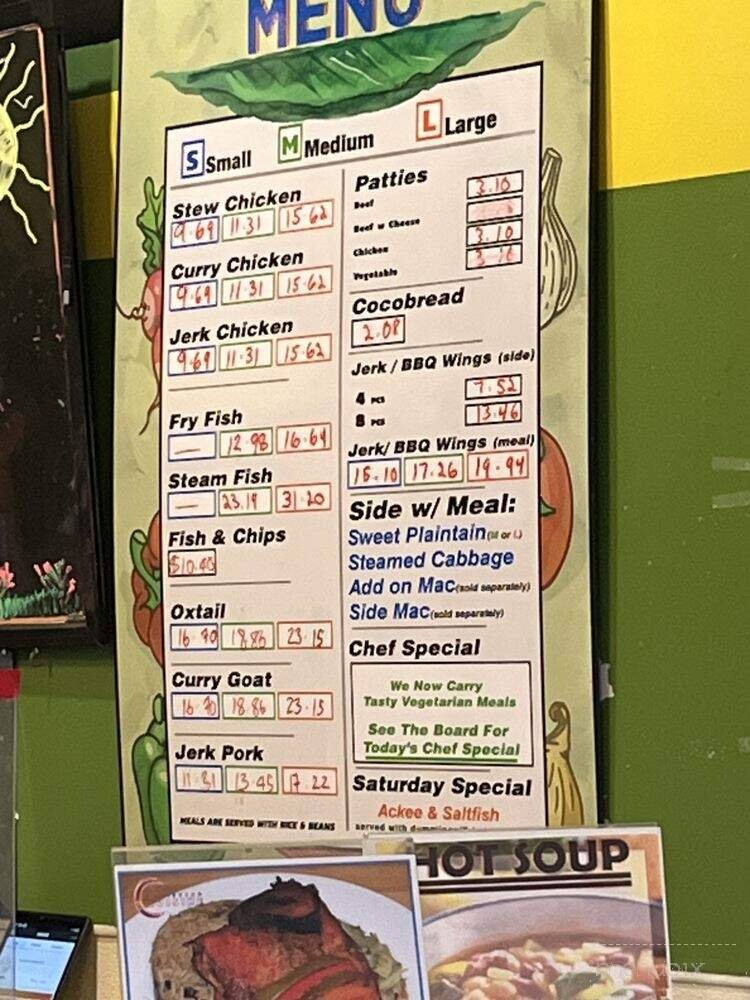 MENU
S Small M Medium L Large
Stew Chicken
9.69 11.31 15.62
Curry Chicken
9.69 11.31 15.62
Jerk Chicken
9.69 11.31 15.62
Fry Fish
— 12.98 16.64
Steam Fish
— 23.19 31.20
Fish & Chips
$10.40
Oxtail
16.70 18.86 23.15
Curry Goat
16.70 18.86 23.15
Jerk Pork
11.31 13.45 17.22
MEALS ARE SERVED WITH RICE & BEANS
Patties
Beef 3.10
Beef w Cheese
Chicken 3.10
Vegetable 3.10
Cocobread
2.08
Jerk / BBQ Wings (side)
4 PCS 7.52
8 PCS 13.46
Jerk/ BBQ Wings (meal)
15.10 17.26 19.94
Side w/ Meal:
Sweet Plaintain (M or L)
Steamed Cabbage
Add on Mac (sold separately)
Side Mac (sold separately)
Chef Special
We Now Carry
Tasty Vegetarian Meals
See The Board For
Today's Chef Special
Saturday Special
Ackee & Saltfish
served with
HOT SOUP